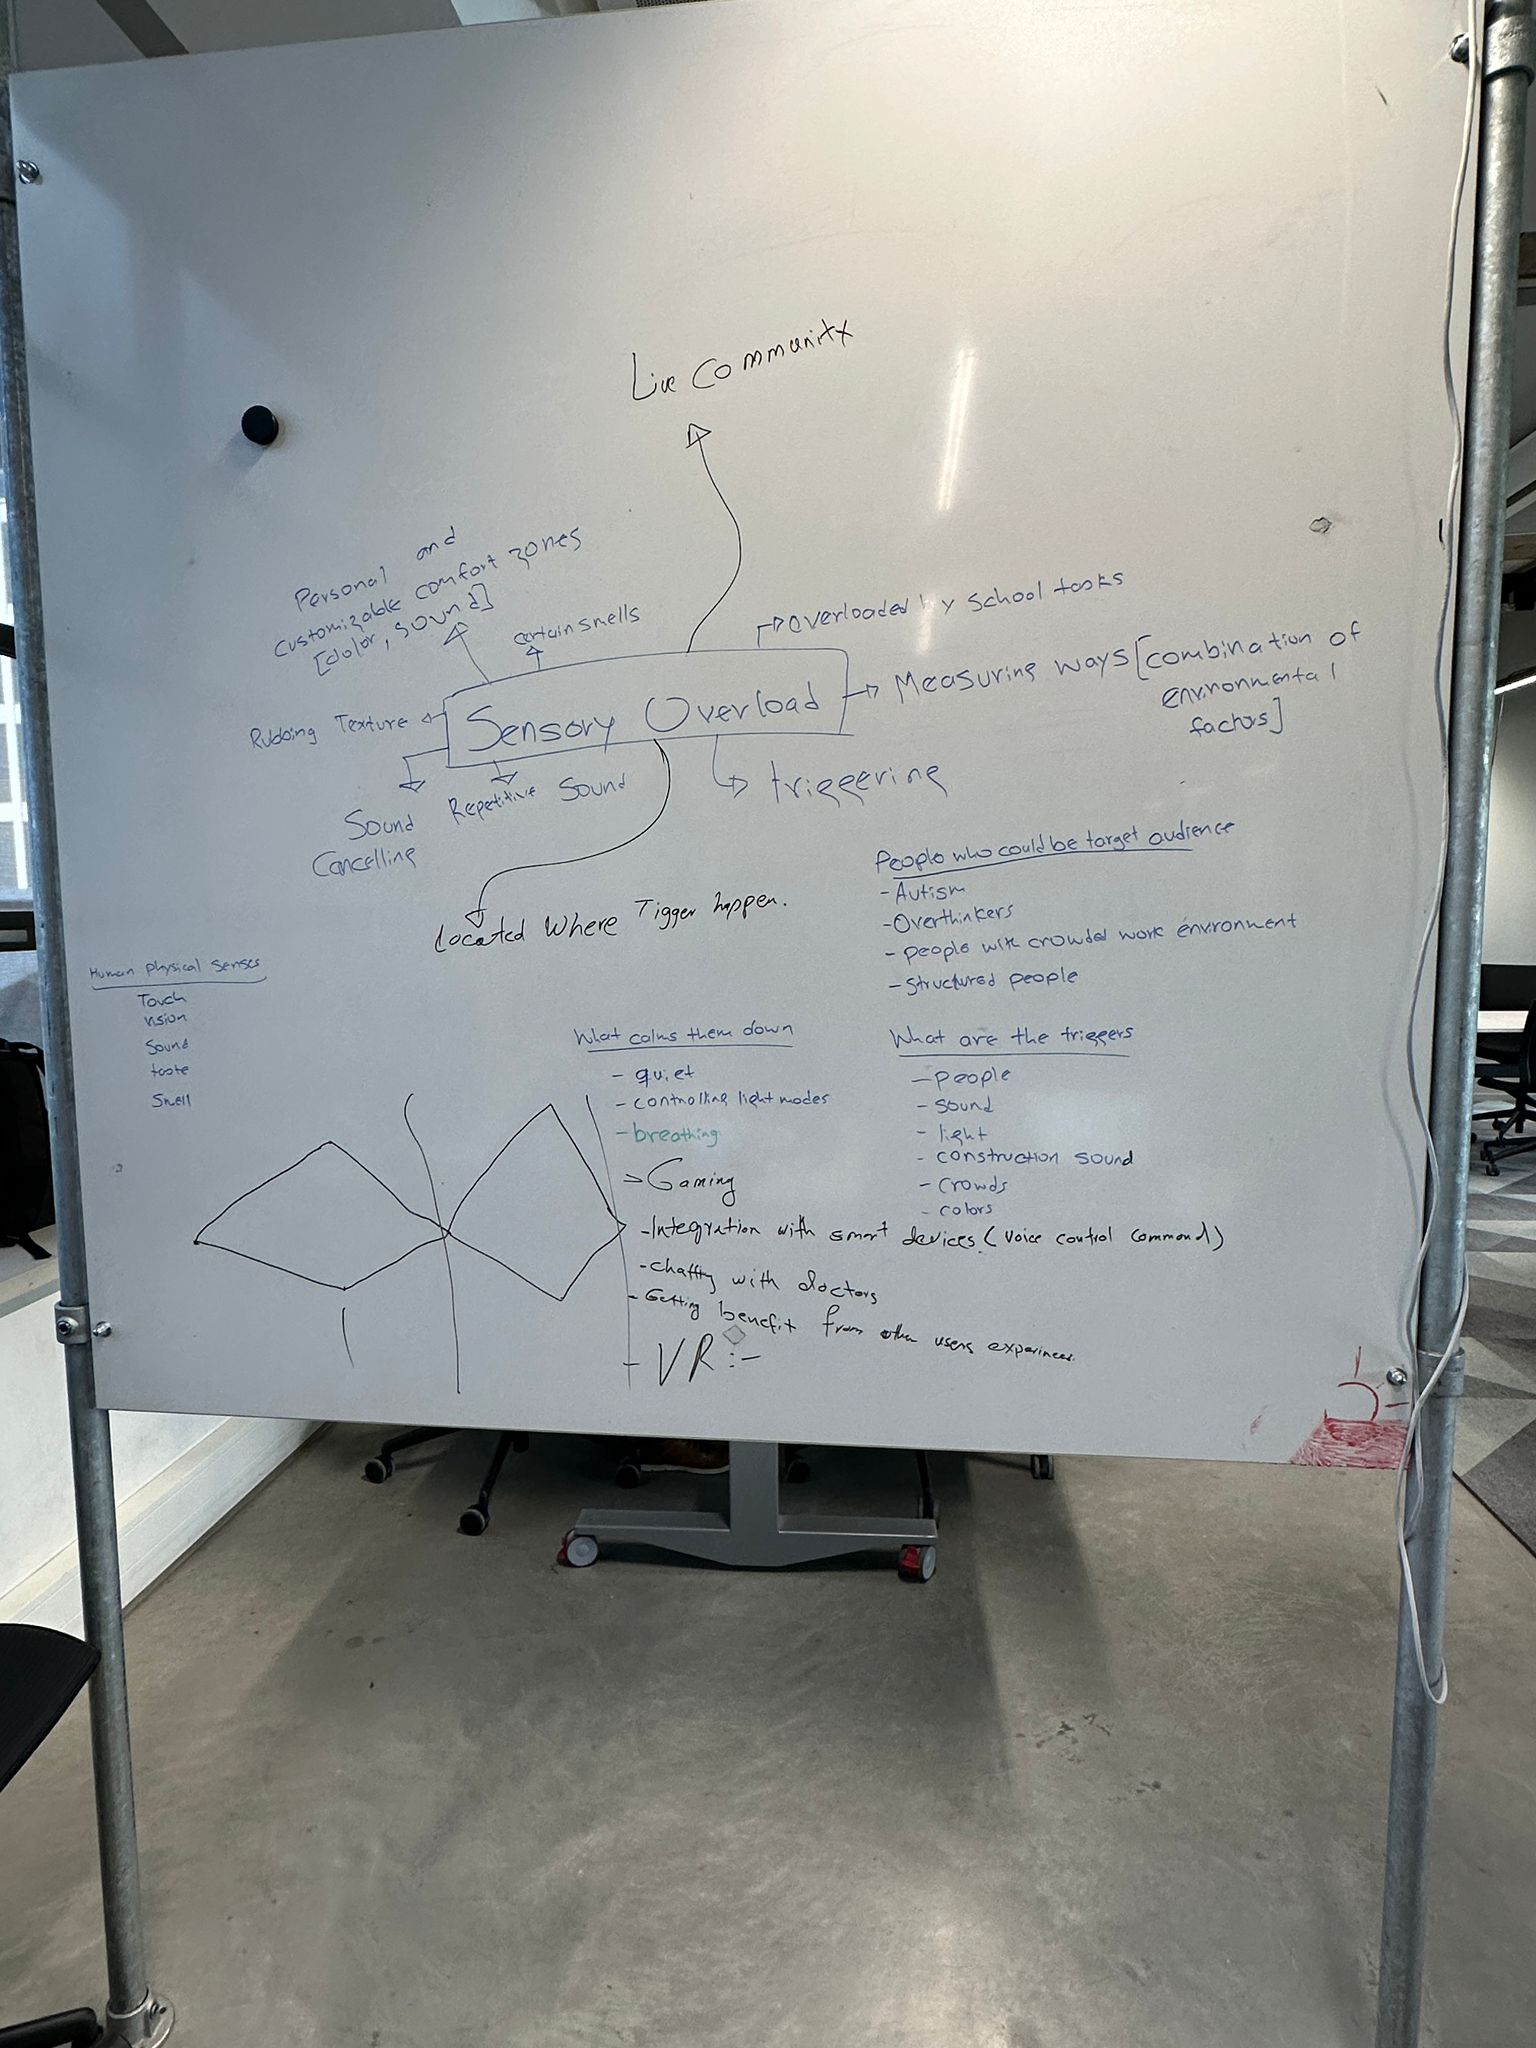 Live Community
Personal and
customizable comfort zones
[color, sound]
certain smells
overloaded by school tasks
Measuring ways [combination of
environmental
factors]
Rubbing Texture
Sensory Overload
Sound
Cancelling
Repetitive Sound
triggering
Located Where Tigger happen.
People who could be target audience
- Autism
- Overthinkers
- people with crowded work environment
- structured people
Human physical senses
Touch
vision
Sound
taste
Smell
What calms them down
- quiet
- controlling light modes
- breathing
- Gaming
- Integration with smart devices (voice control command)
- chatting with doctors
- Getting benefit from other users experinces.
- VR :-
What are the triggers
- people
- sound
- light
- construction sound
- crowds
- colors